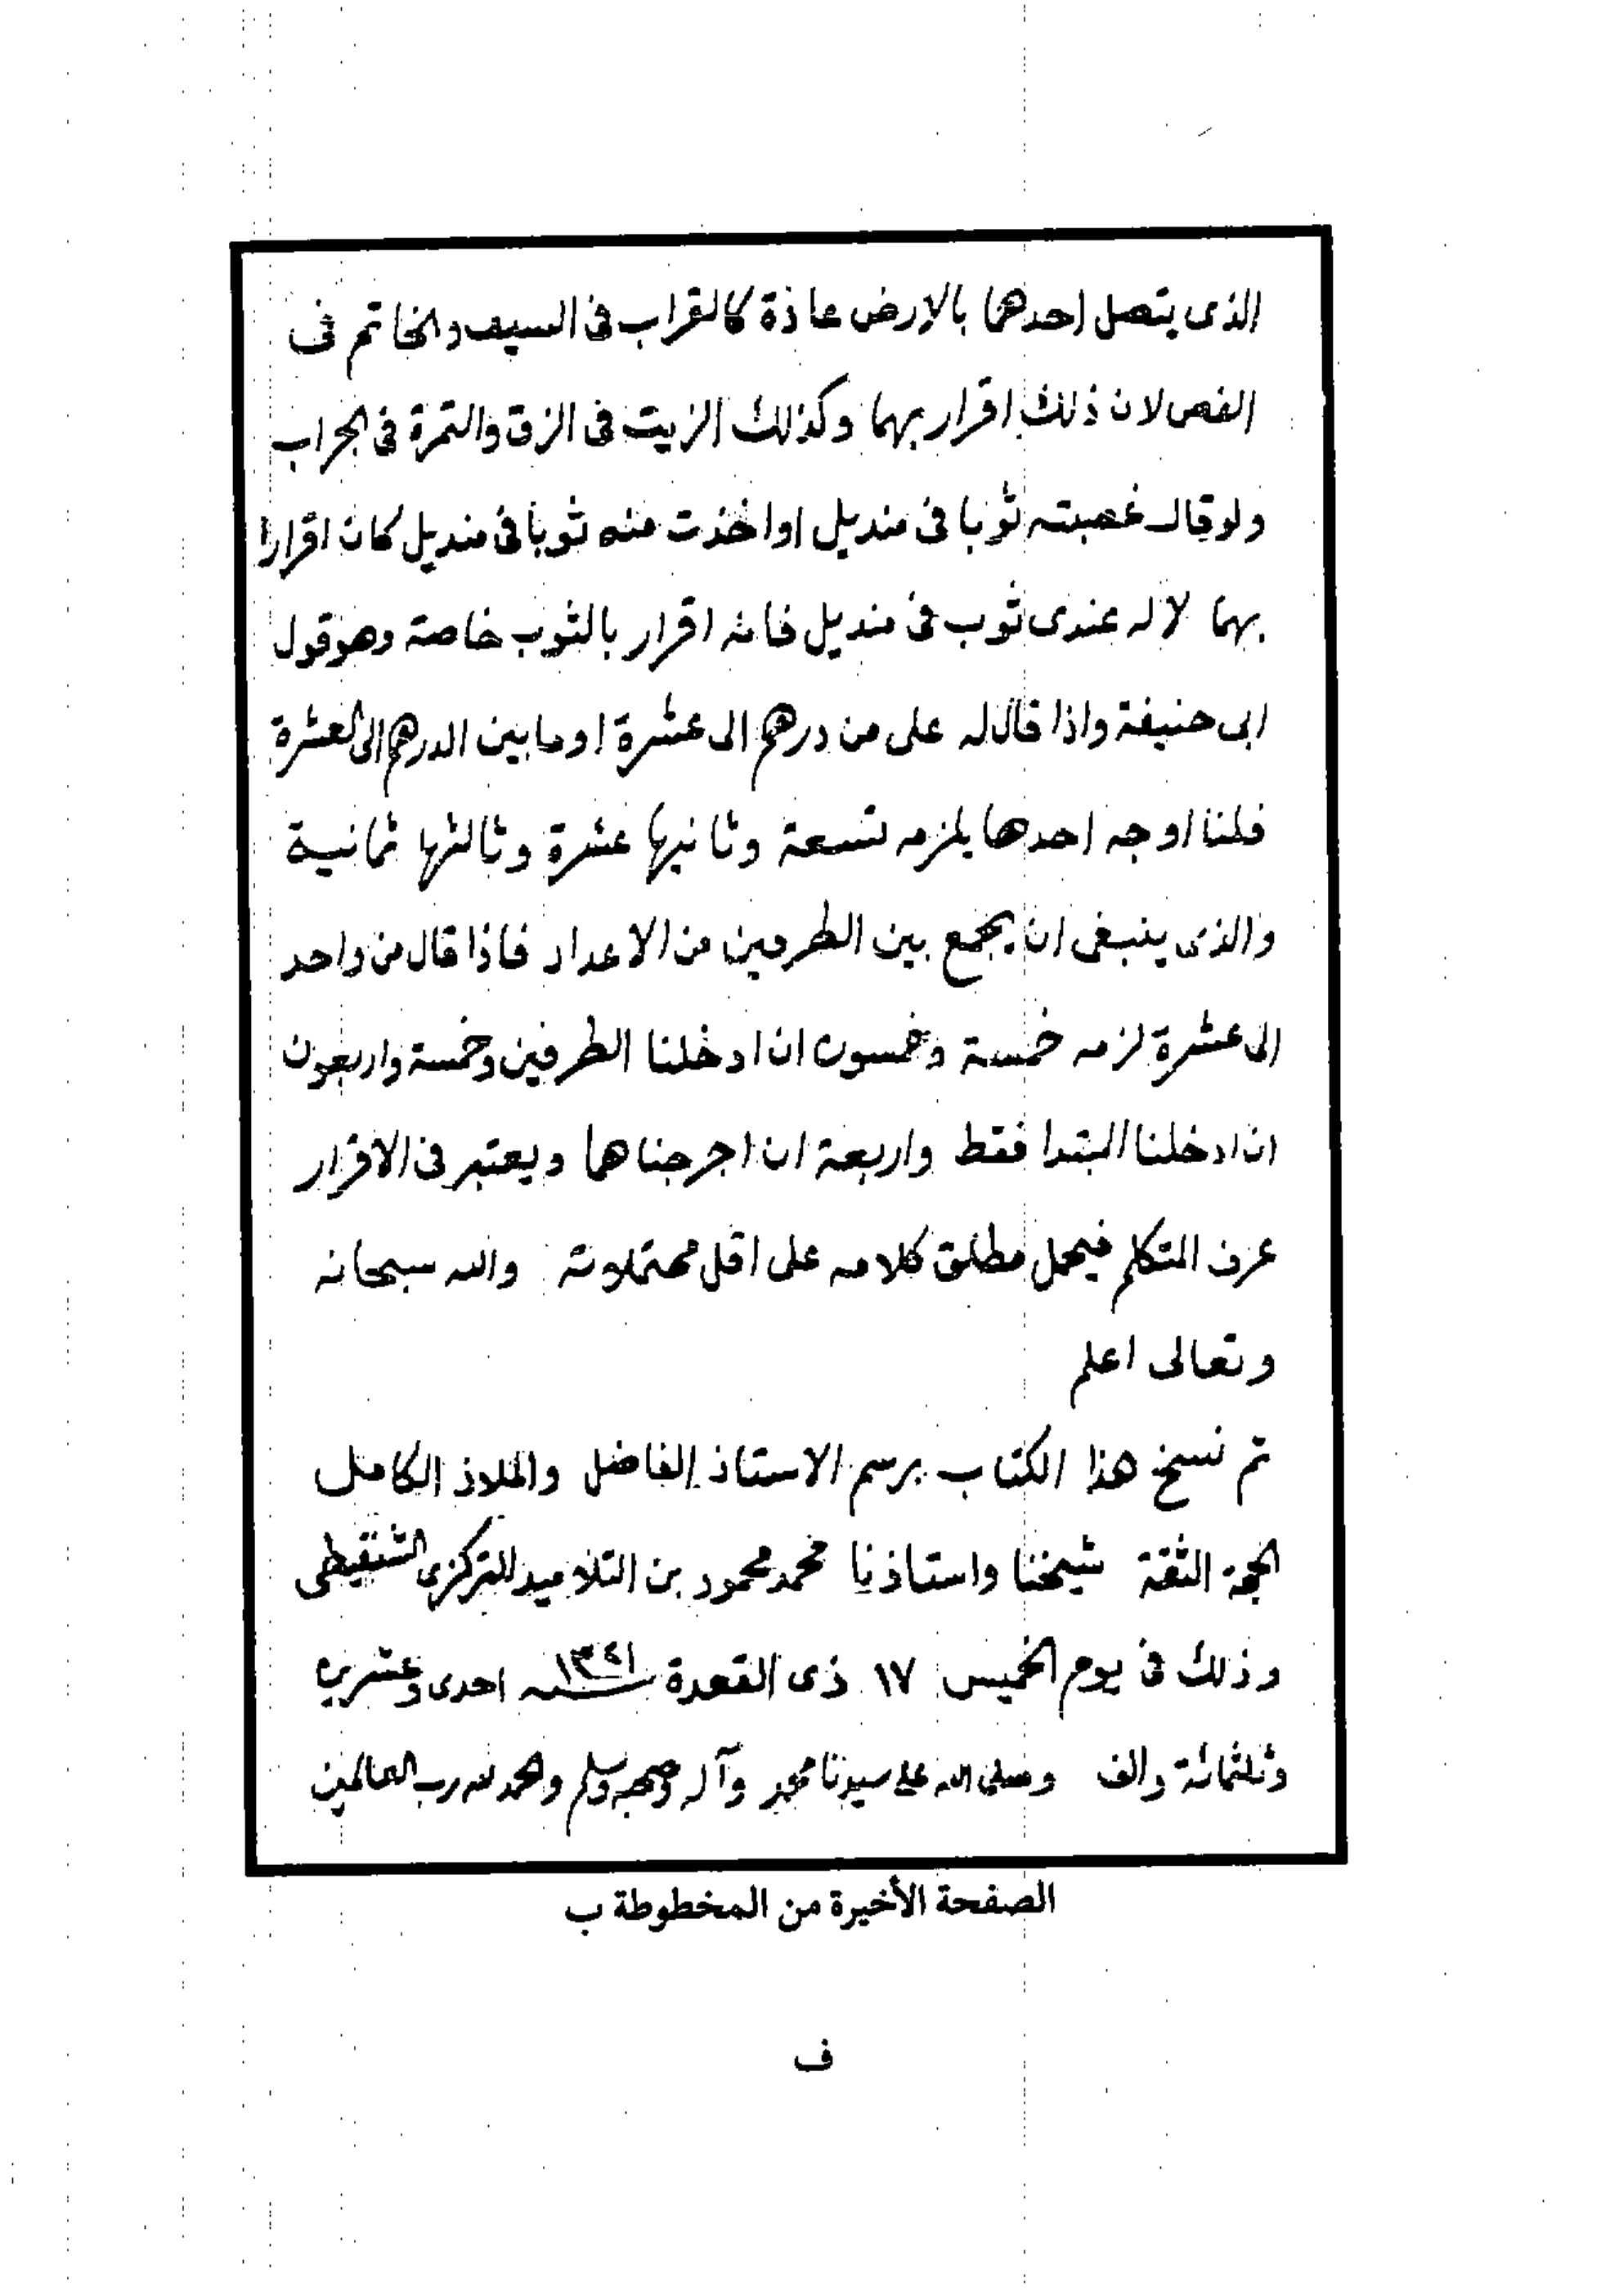 الذى يتصل احدهما بالارض عاذة كالقراب فى السيف والخاتم فى
الفص لان ذلك اقرار بهما وكذلك الزيت فى الزق والتمرة فى الجراب
ولو قال غصبته ثوبا فى منديل او اخذت منه ثوبا فى منديل كان اقرارا
بهما لا له عندى ثوب فى منديل فانه اقرار بالثوب خاصة وهو قول
ابى حنيفة واذا قال له على من درهم الى عشرة او ما بين الدرهم الى العشرة
فلنا اوجه احدها يلزمه تسعة وثانيها عشرة وثالثها ثمانية
والذى ينبغى ان يجمع بين الطرفين من الاعداد فاذا قال من واحد
الى عشرة لزمه خمسة وخمسون ان ادخلنا الطرفين وخمسة واربعون
ان ادخلنا المبتدا فقط واربعة ان اخرجناهما ويعتبر فى الاقرار
عرف المتكلم فيحمل مطلق كلامه على اقل محتملاته والله سبحانه
وتعالى اعلم
تم نسخ هذا الكتاب برسم الاستاذ الفاضل والملاذ الكامل
الحجة الثقة شيخنا واستاذنا محمد محمود بن التلاميد التركزى الشنقيطى
وذلك فى يوم الخميس ١٧ ذى القعدة سنه ١٣٢١ احدى وعشرين
وثلثمائة والف وصلى الله على سيدنا محمد وآله وصحبه وسلم والحمد لله رب العالمين
الصفحة الأخيرة من المخطوطة ب
ف